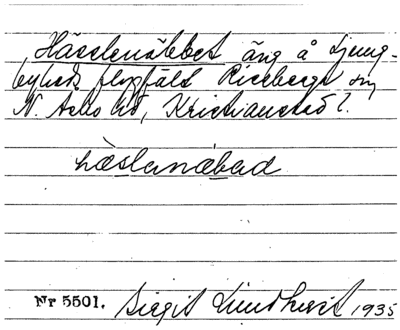 Hässlenäbbet äng å Ljung-
byheds flygfält Riseberga sn
N. Åsbo hd, Kristianstad l.
hàslanábad
Nr 5501. Birgit Lindkvist 1935